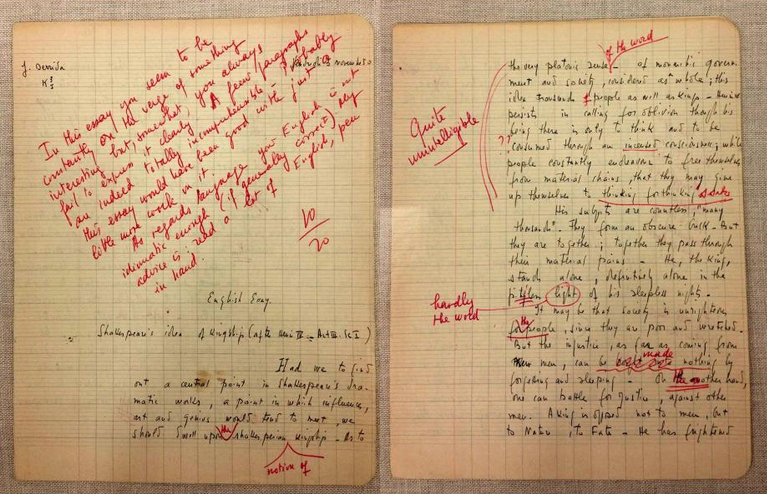 J. Derrida
K I
In this essay you seem to be
constantly on the verge of something
interesting but, somewhat, you always
fail to explain it clearly. A few paragraphs
are indeed totally incomprehensible - Probably
this essay would have been good with just a
little more work on it.
As regards language your English is not
idiomatic enough (if generally correct) My
advice is: read a lot of English, pen
in hand.
10
20
English Essay.
Shakespeare's idea of Kingship (after Henri IV - Act III. Sc I)
Had we to find
out a central point in Shakespeare's dra-
matic works, a point in which influences,
art and genius would tend to meet, we
should dwell upon the shakesperian kingship. As to
notion of
of the word
the very platonic sense - of monarchic govern-
ment and society, considered as whole; this
idea transcends people as well as Kings -
persists in calling for oblivion though his
being there is only to think and to be
Quite
unintelligible
?!
consumed through an incented consciousness; while
people constantly endeavour to free themselves
from material chains, that they may give
up themselves to thinking for thinking's sake
His subjects are countless; "many
thousands". They form an obscure bulk - But
they are together; together they pass through
their material pains - He, the King,
stands alone, definitively alone in the
light of his sleepless nights -
hardly
the word
It may be that society is unrighteous
for the people, since they are poor and wretched.
But the injustice, as far as coming from
men, can be made nothing by
forgetting and sleeping - On the other hand,
one can battle for justice, against other
men. A King is opposed not to men, but
to Nature, to Fate - He has frightened